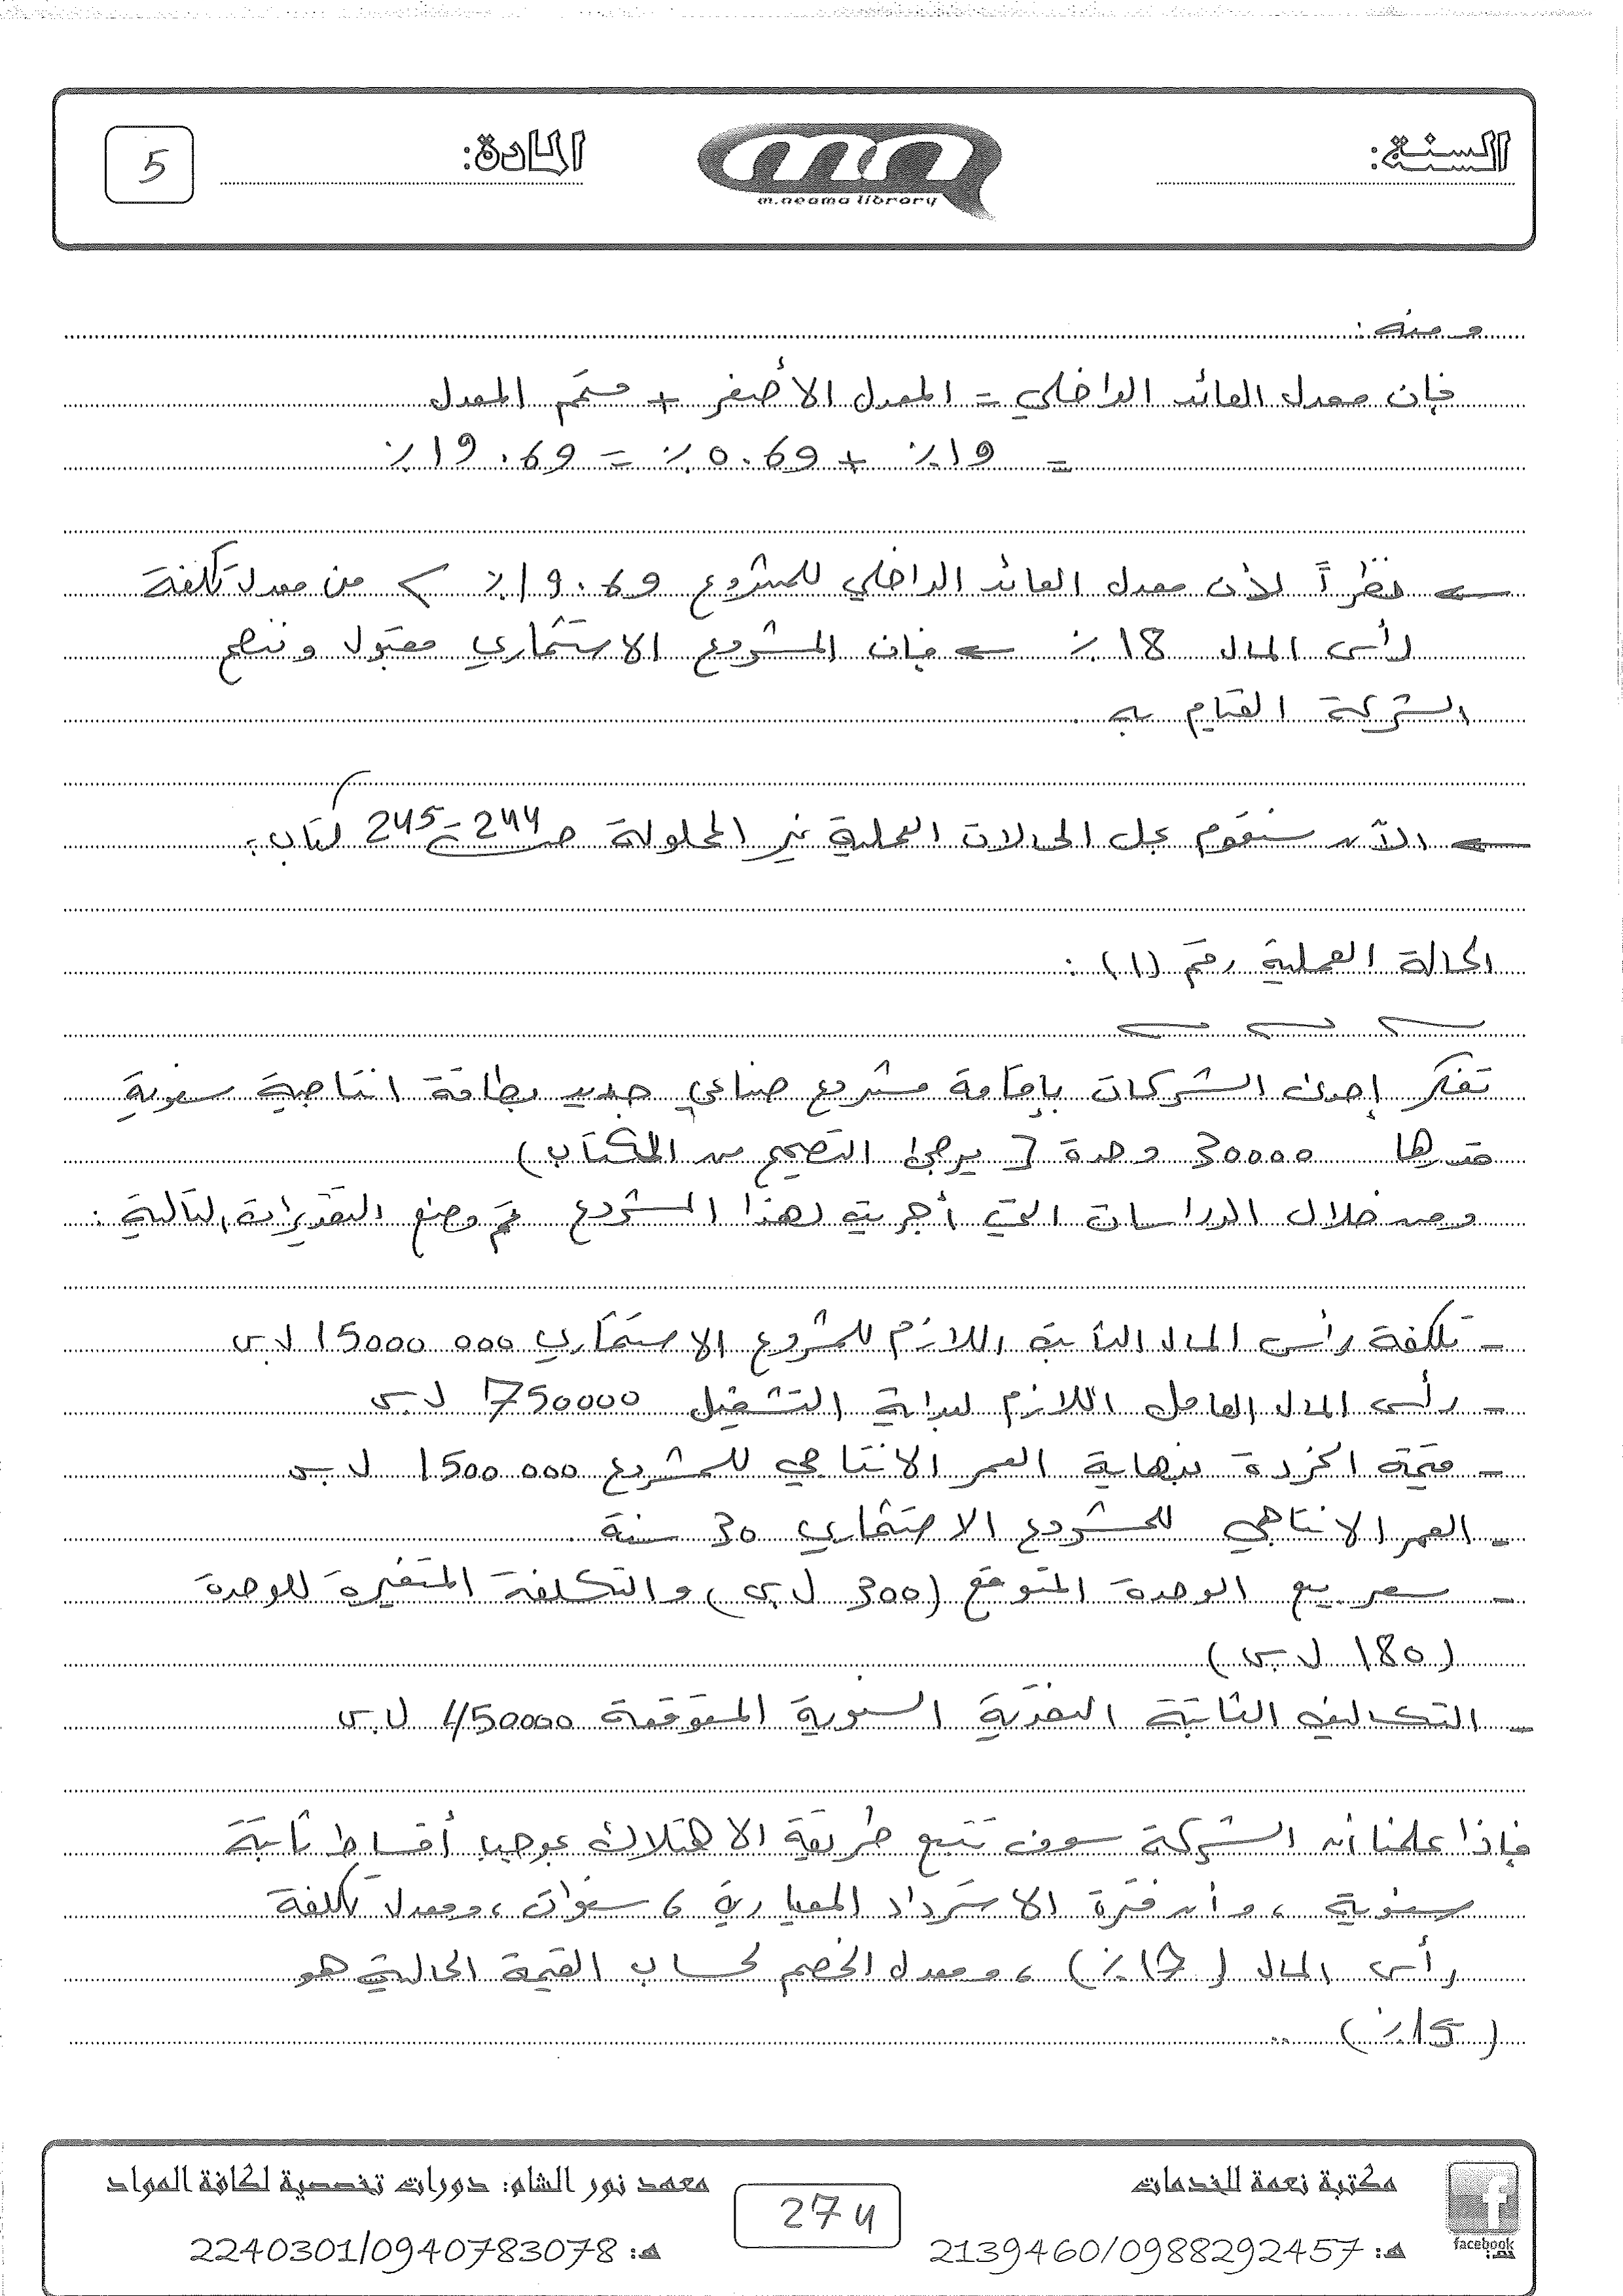 السنة:
المادة:
5
m.neama library
ومنه:
فإن معدل العائد الداخلي = المعدل الأصغر + متمم المعدل
= 19% + 0.69% = 19.69%
← نظراً لأن معدل العائد الداخلي للمشروع 19.69% > من معدل تكلفة
رأس المال 18% ← فإن المشروع الاستثماري مقبول وننصح
الشركة القيام به
← الآن سنقوم بحل الحالات العملية غير المحلولة ص 244 - 245 كتاب:
الحالة العملية رقم (1):
تفكر إحدى الشركات بإقامة مشروع صناعي جديد بطاقة انتاجية سنوية
قدرها 30000 وحدة [ يرجى التصحيح من الكتاب)
ومن خلال الدراسات التي أجريت لهذا المشروع تم وضع التقديرات التالية:
- تكلفة رأس المال الثابتة اللازم للمشروع الاستثماري 15000 000 ل.س
- رأس المال العامل اللازم لبداية التشغيل 750000 ل.س
- قيمة الخردة بنهاية العمر الانتاجي للمشروع 1500 000 ل.س
- العمر الانتاجي للمشروع الاستثماري 30 سنة
- سعر بيع الوحدة المتوقع (300 ل.س) والتكلفة المتغيرة للوحدة
(180 ل.س)
- التكاليف الثابتة النقدية السنوية المتوقعة 450000 ل.س
فإذا علمنا أن الشركة سوف تتبع طريقة الاهتلاك بموجب أقساط ثابتة
سنوية، وأن فترة الاسترداد المعيارية 6 سنوات، ومعدل تكلفة
رأس المال (17%)، ومعدل الخصم لحساب القيمة الحالية هو
(15%) ..
مكتبة نعمة للخدمات
هـ: 2139460/0988292457
274
معهد نور الشام: دورات تخصصية لكافة المواد
هـ: 2240301/0940783078
facebook